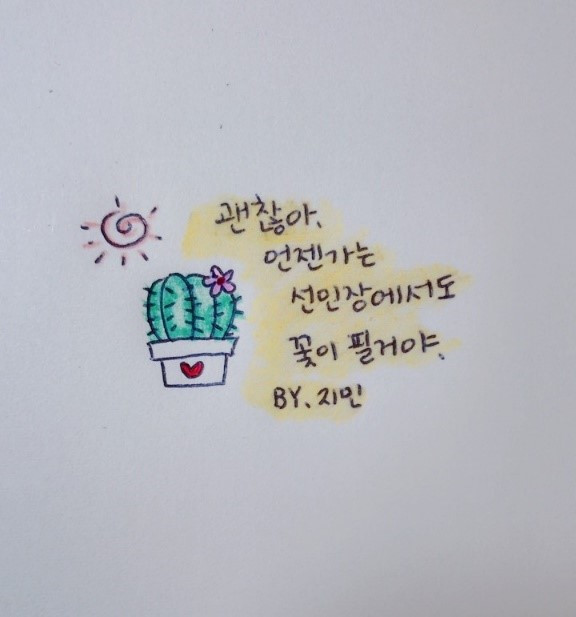 괜찮아.
언젠가는
선인장에서도
꽃이 필거야.
BY. 지민